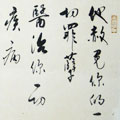 他赦免你的一
切罪孽
醫治你一切
疾病